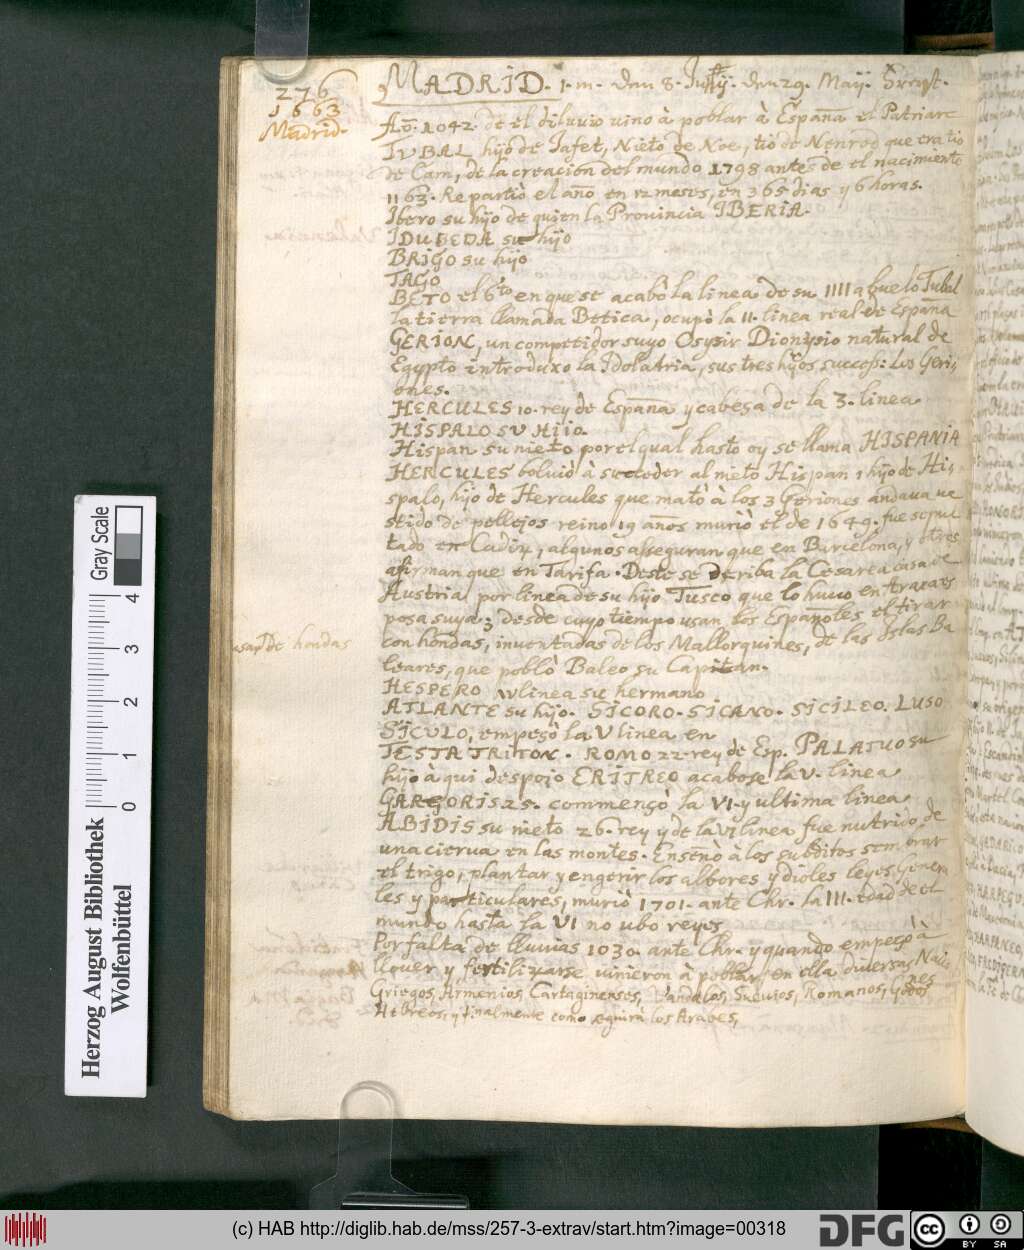 276
1663
Madrid.
MADRID. 1. m. den 8. den 29. Maij.
Aõ. 1042. de el diluvio vino à poblar à España el Patriarc
TVBAL hijo de Jafet, Nieto de Noe, tio de Nenrod que era tio
de Cam, de la creacion del mundo 1798 antes de el nacimiento
1163. Repartiò el año en 12 meses, en 365 dias y 6 horas.
Ibero su hijo de quien la Provincia IBERIA.
IDUBEDA su hijo
BRIGO su hijo
TAGO
BETO el 6to en que se acabò la linea de su IIII abuelo Tubal
la tierra llamada Betica, ocupò la II. linea real de España
GERION, un competidor suyo Osysir Dionysio natural de
Egypto introduxo la Idolatria, sus tres hijos success: los Geri,
ones.
HERCULES 10. rey de España y cabesa de la 3. linea
HISPALO SV HIJO.
Hispan su nieto por el qual hasto oy se llama HISPANIA
HERCULES bolviò à succeder al nieto Hispan, hijo de His
spalo, hijo de Hercules que matò à los 3 Geriones andava ve
stido de pellejos reino 19 años muriò el de 1649. fue sepul
tado en Cadiz, algunos asseguran que en Barcelona, y otros
afirman que en Tarifa. Deste se deriba la Cesarea casa de
Austria por linea de su hijo Tusco que lo huvo en Araxa es
posa suya; desde cuyo tiempo usan los Españoles el tirar
de hondas
con hondas, inventadas de los Mallorquines, de las Islas Ba
leares, que poblò Baleo su Capitan.
HESPERO IV linea su hermano
ATLANTE su hijo. SICORO. SICANO. SICILEO. LUSO
SICULO, empeçò la V linea en
TESTA TRITON. ROMO 22. rey de Esp. PALATUO su
hijo à qui despojo ERITREO acabose la V. linea
GARGORIS 25. commençò la VI. y ultima linea
ABIDIS su nieto 26. rey y de la VI linea fue nutrido de
una cierva en las montes. Enseñò à los subditos sembrar
el trigo, plantar y engerir los albores y dioles leyes Genera
les y particulares, muriò 1701. ante Chr. la III. edad de el
mundo hasta la VI no ubo reyes
Por falta de lluvias 1030. ante Chr. y quando empeçò à
llover y fertilizarse vinieron à poblar en ella diversas Nacio
nes
Griegos, Armenios, Cartaginenses, Vandalos, Suevios, Romanos, Godos
Hebreos, y finalmente como seguirà los Arabes,
Gray Scale
0 1 2 3 4
Herzog August Bibliothek
Wolfenbüttel
(c) HAB http://diglib.hab.de/mss/257-3-extrav/start.htm?image=00318
DFG
cc BY SA